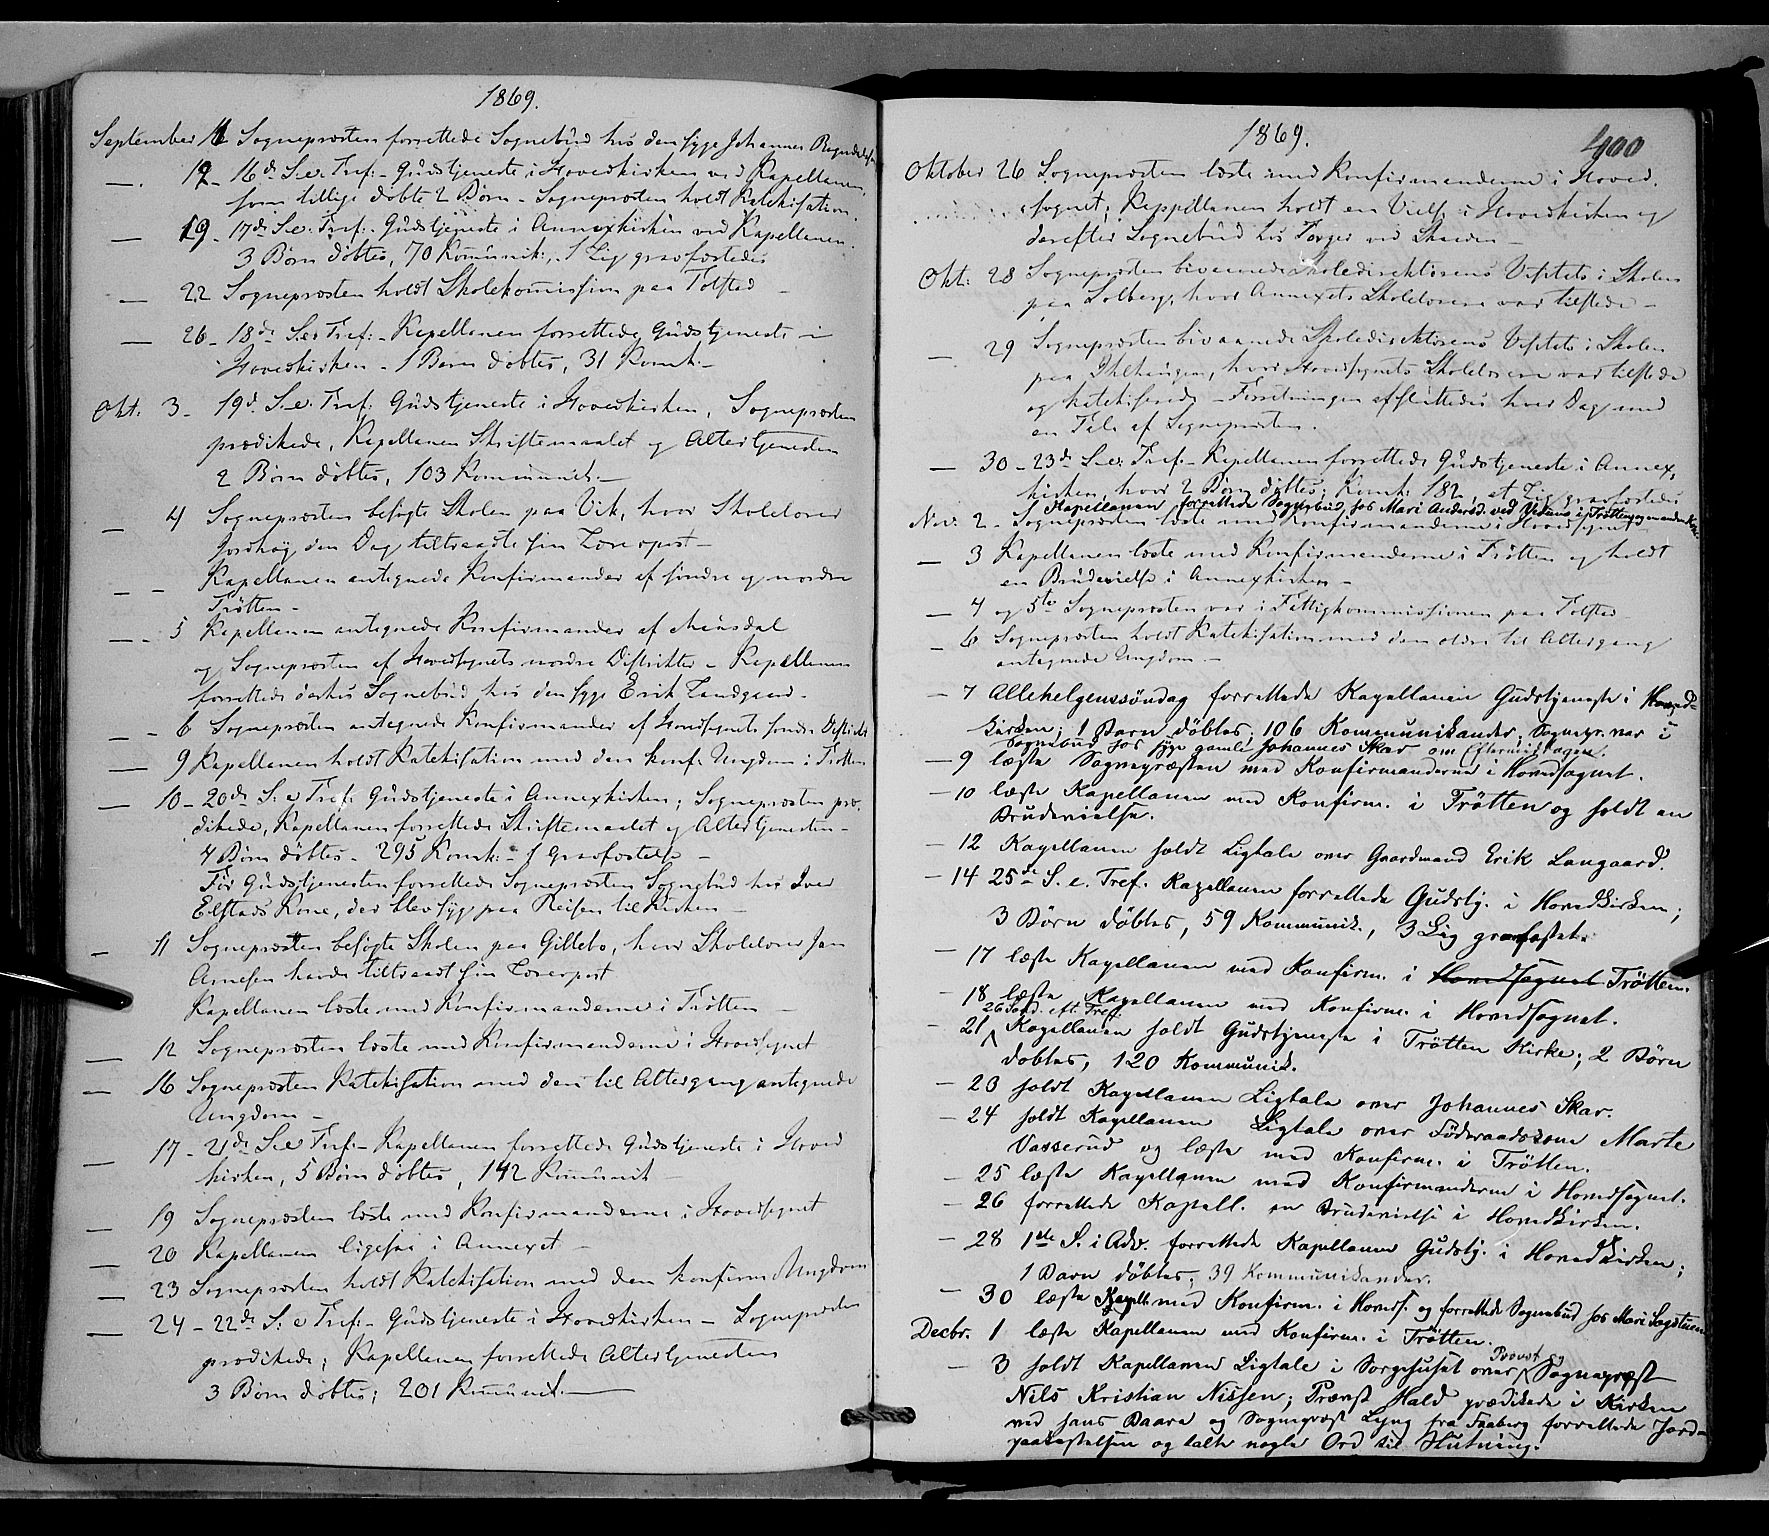 1869.
September 11 Sognepræsten forrettede Sognebud hos den syge Johannes
— . 12 - 16de S. e. Tref. - Gudstjeneste i Hovedkirken ved Kapellanen,
som tillige døbte 2 Børn - Sognepræsten holdt Katekisation.
— 19 - 17de S. e. Tref. - Gudstjeneste i Annexkirken ved Kapellanen.
3 Børn døbtes, 70 Komunik:, 1 Lig gravfæstedes
— 22 Sognepræsten holdt Skolekomission paa Tolstad —
— 26 - 18de S. e. Tref: - Kapellanen forrettede Gudstjeneste i
Hovedkirken - 1 Barn døbtes, 31 Komk. —
Okt: 3 - 19d. S. e. Tref: Gudstjeneste i Hovedkirken, Sognepræsten
prædikede, Kapellanen Skriftemaalet og Altertjenesten
2 Børn døbtes, 103 Kommunik. —
— 4 Sognepræsten besøgte Skolen paa Vik, hvor Skolelærer
Jordhøy den Dag tiltraadte sin Lærerpost —
— - Kapellanen antegnede Konfirmander af søndre og nordre
Trøtten -
— - 5 Kapellanen antegnede Konfirmander af Musdal
og Sognepræsten af Hovedsognets nordre Distrikter - Kapellanen
forrettede derhos Sognebud hos den syge Erik Landgaard -
— - 6 Sognepræsten antegnede Konfirmander af Hovedsognets søndre Distrikt
— 9 Kapellanen holdt Katekisation med den konf. Ungdom i Trøtten
— 10 - 20de S. e. Tref: Gudstjeneste i Annexkirken; Sognepræsten præ-
dikede, Kapellanen forrettede Skriftemaalet og Altertjenesten -
4 Børn døbtes - 295 Komk: - 1 Gravfæstelse —
Før Gudstjenesten forrettede Sognepræsten Sognebud hos Iver
Elstads Kone, der blev syg paa Reisen til Kirken —
— 11 Sognepræsten besøgte Skolen paa Gillebo, hvor Skolelærer Jan
Arnesen havde tiltraadt sin Lærerpost
Kapellanen læste med Konfirmanderne i Trøtten —
— 12 Sognepræsten læste med Konfirmanderne i Hovedsognet
— 16 Sognepræsten Katekisation med den til Altergang antegnede
Ungdom —
— 17 - 21de S. e. Tref. - Kapellanen forrettede Gudstjeneste i Hoved
kirken, 5 Børn døbtes, 142 Komunik —
— 19 Sognepræsten læste med Konfirmanderne i Hovedsognet
— 20 Kapellanen ligesaa i Annexet —
— 23 Sognepræsten holdt Katekisation med den konfirm. Ungdom
— 24 - 22de S. e. Tref: - Gudstjeneste i Hovedkirken - Sognepræsten
prædikede; Kapellanen forrettede Altertjenesten
3 Børn døbtes; 201 Komunik. —
1869.
400
Oktober 26 Sognepræsten læste med Konfirmanderne i Hoved.
sognet; Kappellanen holdt en Vielse i Hovedkirken og
derefter Sognebud hos Torger ved Skurden —
Okt: 28 Sognepræsten bivaanede Skoledirektørens Visitats i Skolen
paa Solberg, hvor Annexets Skolelærere var tilstede —
— 29 Sognepræsten bivaanede Skoledirektørens Visitats i Skolen
paa hvor Hovedsognets Skolelærere var tilstede
og katekiserede - Forretningen afsluttedes hver Dag med
en Tale af Sognepræsten.
— 30 - 23de S. e. Tref. - Kapellanen forrettede Gudstjeneste i Annex,
kirken, hvor 2 Børn døbtes; Komk: 182, et Lig gravfæstedes
Kapellanen forrettede Sognebud hos Mari Andersd. ved i Trøtten
Nov. 2 - Sognepræsten læste med Konfirmanderne i Hovedsognet
— 3 Kapellanen læste med Konfirmanderne i Trøtten og holdt
en Brudevielse i Annexkirken —
— 4 og 5te Sognepræsten var i Fattigkommissionen paa Tolstad
— 6 Sognepræsten holdt Katekisation med den ældre til Altergang
antegnede Ungdom. —
— 7 Allehelgenssöndag forrettede Kapellanen Gudstjeneste i Hoved-
kirken; 1 Barn döbtes; 106 Kommunikander. Sognepr. var i
Sognebud hos syge gamle Johannes Skar om Eftermiddagen.
— 9 læste Sognepræsten med Konfirmanderne i Hovedsognet.
— 10 læste Kapellanen med Konfirm. i Trötten og holdt en
Brudevielse.
— 12 Kapellanen holdt Ligtale over Gaardmand Erik Langaard.
— 14 25de S. e. Tref. Kapellanen forrettede Gudstj. i Hovedkirken;
3 Börn döbtes, 59 Kommunik., 3 Lig gravfæstet.
— 17 læste Kapellanen med Konfirm. i Hovedsognet Trötten.
— 18 læste Kapellanen med Konfirm. i Hovedsognet.
26 Sönd. eft. Tref.
— 21 Kapellanen holdt Gudstjeneste i Trötten Kirke; 2 Börn
döbtes, 120 Kommunik.
— 23 holdt Kapellanen Ligtale over Johannes Skar.
— 24 holdt Kapellanen Ligtale over Föderaadskone Marte
Vasserud og læste med Konfirm. i Trötten.
— 25 læste Kapellanen med Konfirmanderne i Hovedsognet.
— 26 forrettede Kapell. en Brudevielse i Hovedkirken.
— 28 1ste S. i Adv. forrettede Kapellanen Gudstj. i Hovedkirken;
1 Barn döbtes; 39 Kommunikander.
— 30 læste Kapell. med Konfirm. i Hoveds. og forrettede Sognebud hos Mari Sagstuen
Decbr. 1 læste Kapellanen med Konfirm. i Trötten.
— 3 holdt Kapellanen Ligtale i Sorgehuset over Provst og Sognepræst
Nils Kristian Nissen; Provst Hald prædikede i Kirken
ved hans Baare og Sognepræst Lyng fra Faaberg forrettede Jords
paakastelsen og talte nogle Ord til Slutning.